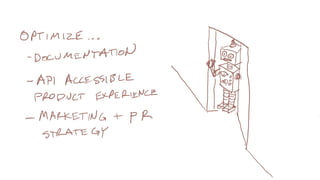 OPTIMIZE...
- DOCUMENTATION
- API ACCESSIBLE
PRODUCT EXPERIENCE
- MARKETING + PR
STRATEGY